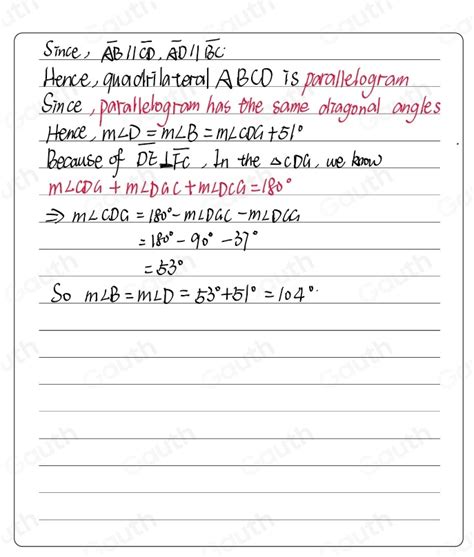 Since, A̅B̅ // C̅D̅, A̅D̅ // B̅C̅.
Hence, quadrilateral ABCD is parallelogram
Since, parallelogram has the same diagonal angles
Hence, m∠D = m∠B = m∠CDG + 51°
Because of D̅E̅ ⊥ F̅C̅, In the △CDG, we know
m∠CDG + m∠DGC + m∠DCG = 180°
⇒ m∠CDG = 180° - m∠DGC - m∠DCG
= 180° - 90° - 37°
= 53°
So m∠B = m∠D = 53° + 51° = 104°.
Gauth